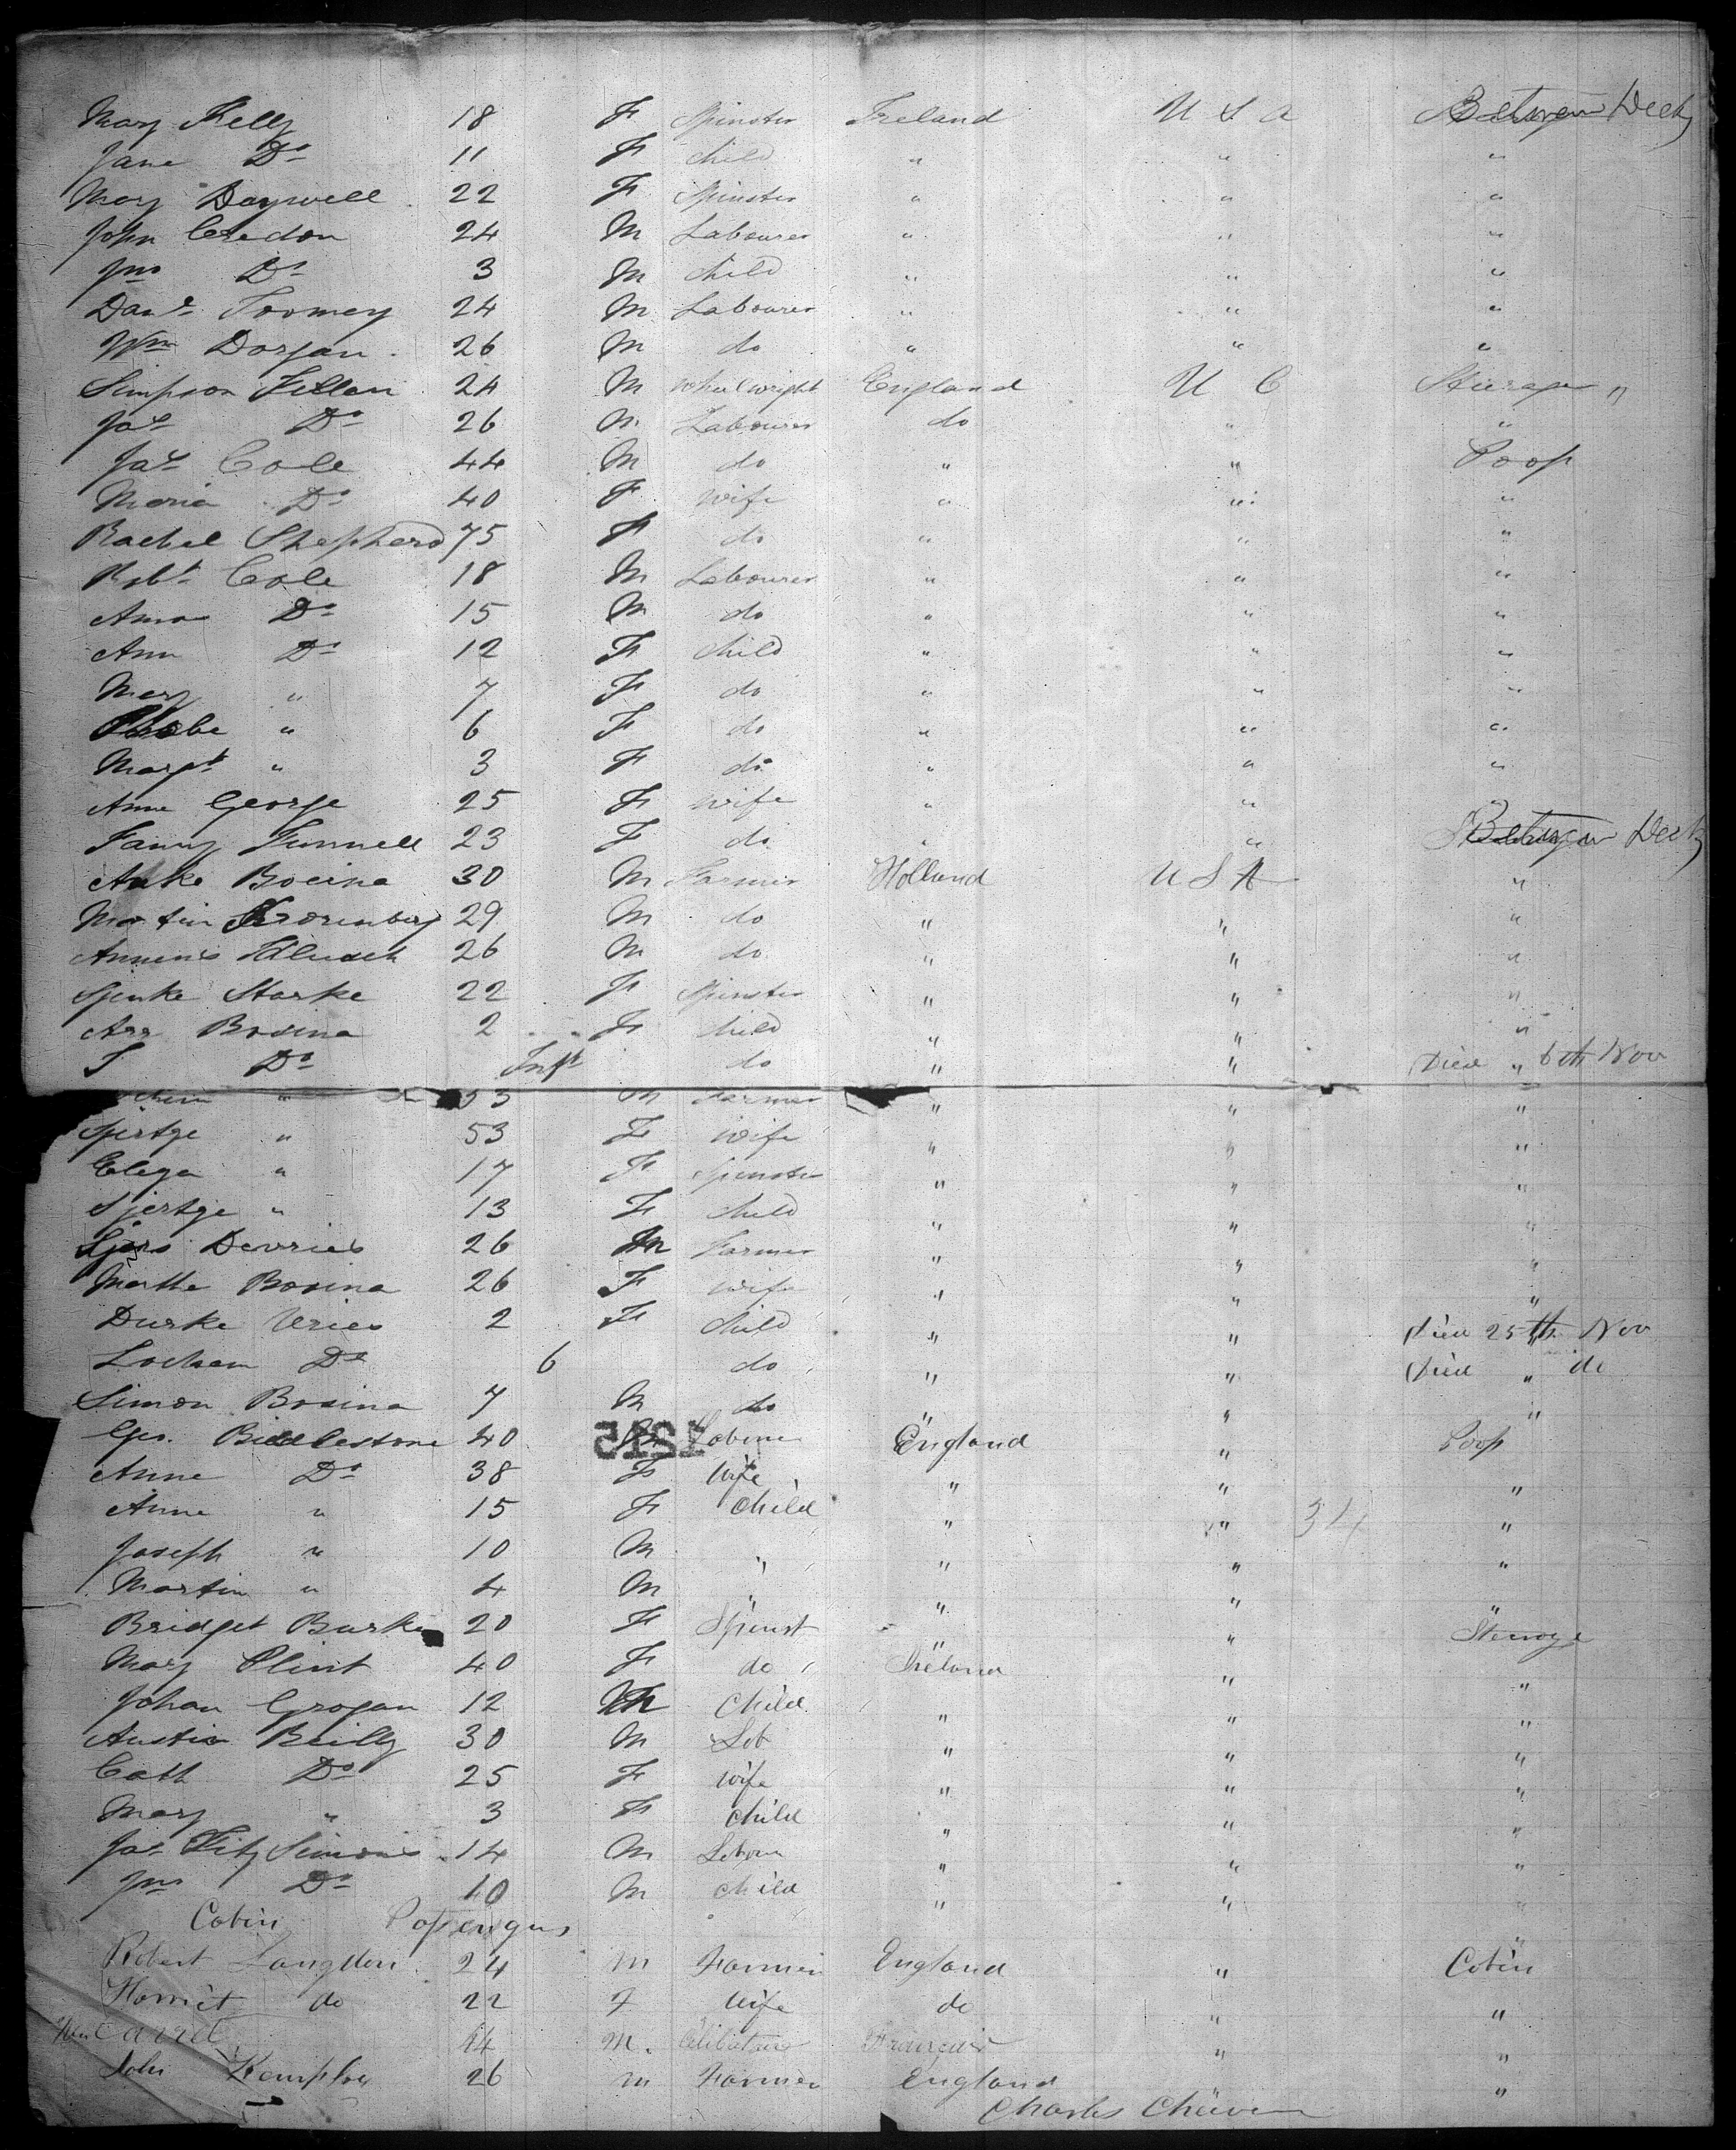 Mary Kelly 18 F Spinster Ireland U S A Between Deck
Jane Do 11 F Child " " "
Mary Bagwell 22 F Spinster " " "
John Credon 24 M Labourer " " "
Jno Do 3 M Child " " "
Danl Toomey 24 M Labourer " " "
Wm Dorgan 26 M do " " "
Simpson 24 M Wheelwright England U C Steerage "
Jas Do 26 M Labourer do " "
Jas Cole 44 M do " " Poop
Maria Do 40 F Wife " " "
Rachel Shepherd 75 F do " " "
Robt Cole 18 M Labourer " " "
Amos Do 15 M do " " "
Ann Do 12 F Child " " "
Mary " 7 F do " " "
Phobe " 6 F do " " "
Margt " 3 F do " " "
Anne George 25 F Wife " " "
Fanny Funnell 23 F do " " Between Deck
Auke Bocina 30 M Farmer Holland U S A "
Martin 29 M do " " "
26 M do " " "
Starke 22 F Spinster " " "
Bosina 2 F Child " " "
Do Inft do " " Died " 6th Nov
" 53 M Farmer " " "
" 53 F Wife " " "
" 17 F Spinster " " "
Sjertge " 13 F Child " " "
Devries 26 M Farmer " " "
Martha Bosina 26 F Wife " " "
Durke Vries 2 F Child " " Died 25th Nov
Do 6 do " " Died " do
Simon Bosina 7 M do " " "
Geo. Biddlestone 40 M Labourer England " Poop
1215
Anne Do 38 F Wife " " "
Anne " 15 F Child " " 34 "
Joseph " 10 M " " " "
Martin " 4 M " " " "
Bridget Burke 20 F Spinst " " Steerage
Mary Clint 40 F do Ireland " "
Johan Grogan 12 M Child " " "
Austin Reilly 30 M Lab " " "
Cath Do 25 F Wife " " "
Mary " 3 F Child " " "
Jas Fitz Simons 14 M Labour " " "
Jno Do 10 M Child " " "
Cabin Passengers
Robert Langdon 24 M Farmer England " Cabin
Harriet do 22 F Wife do " "
44 M. Célibataire Français " "
John 26 M Farmer England "
Charles